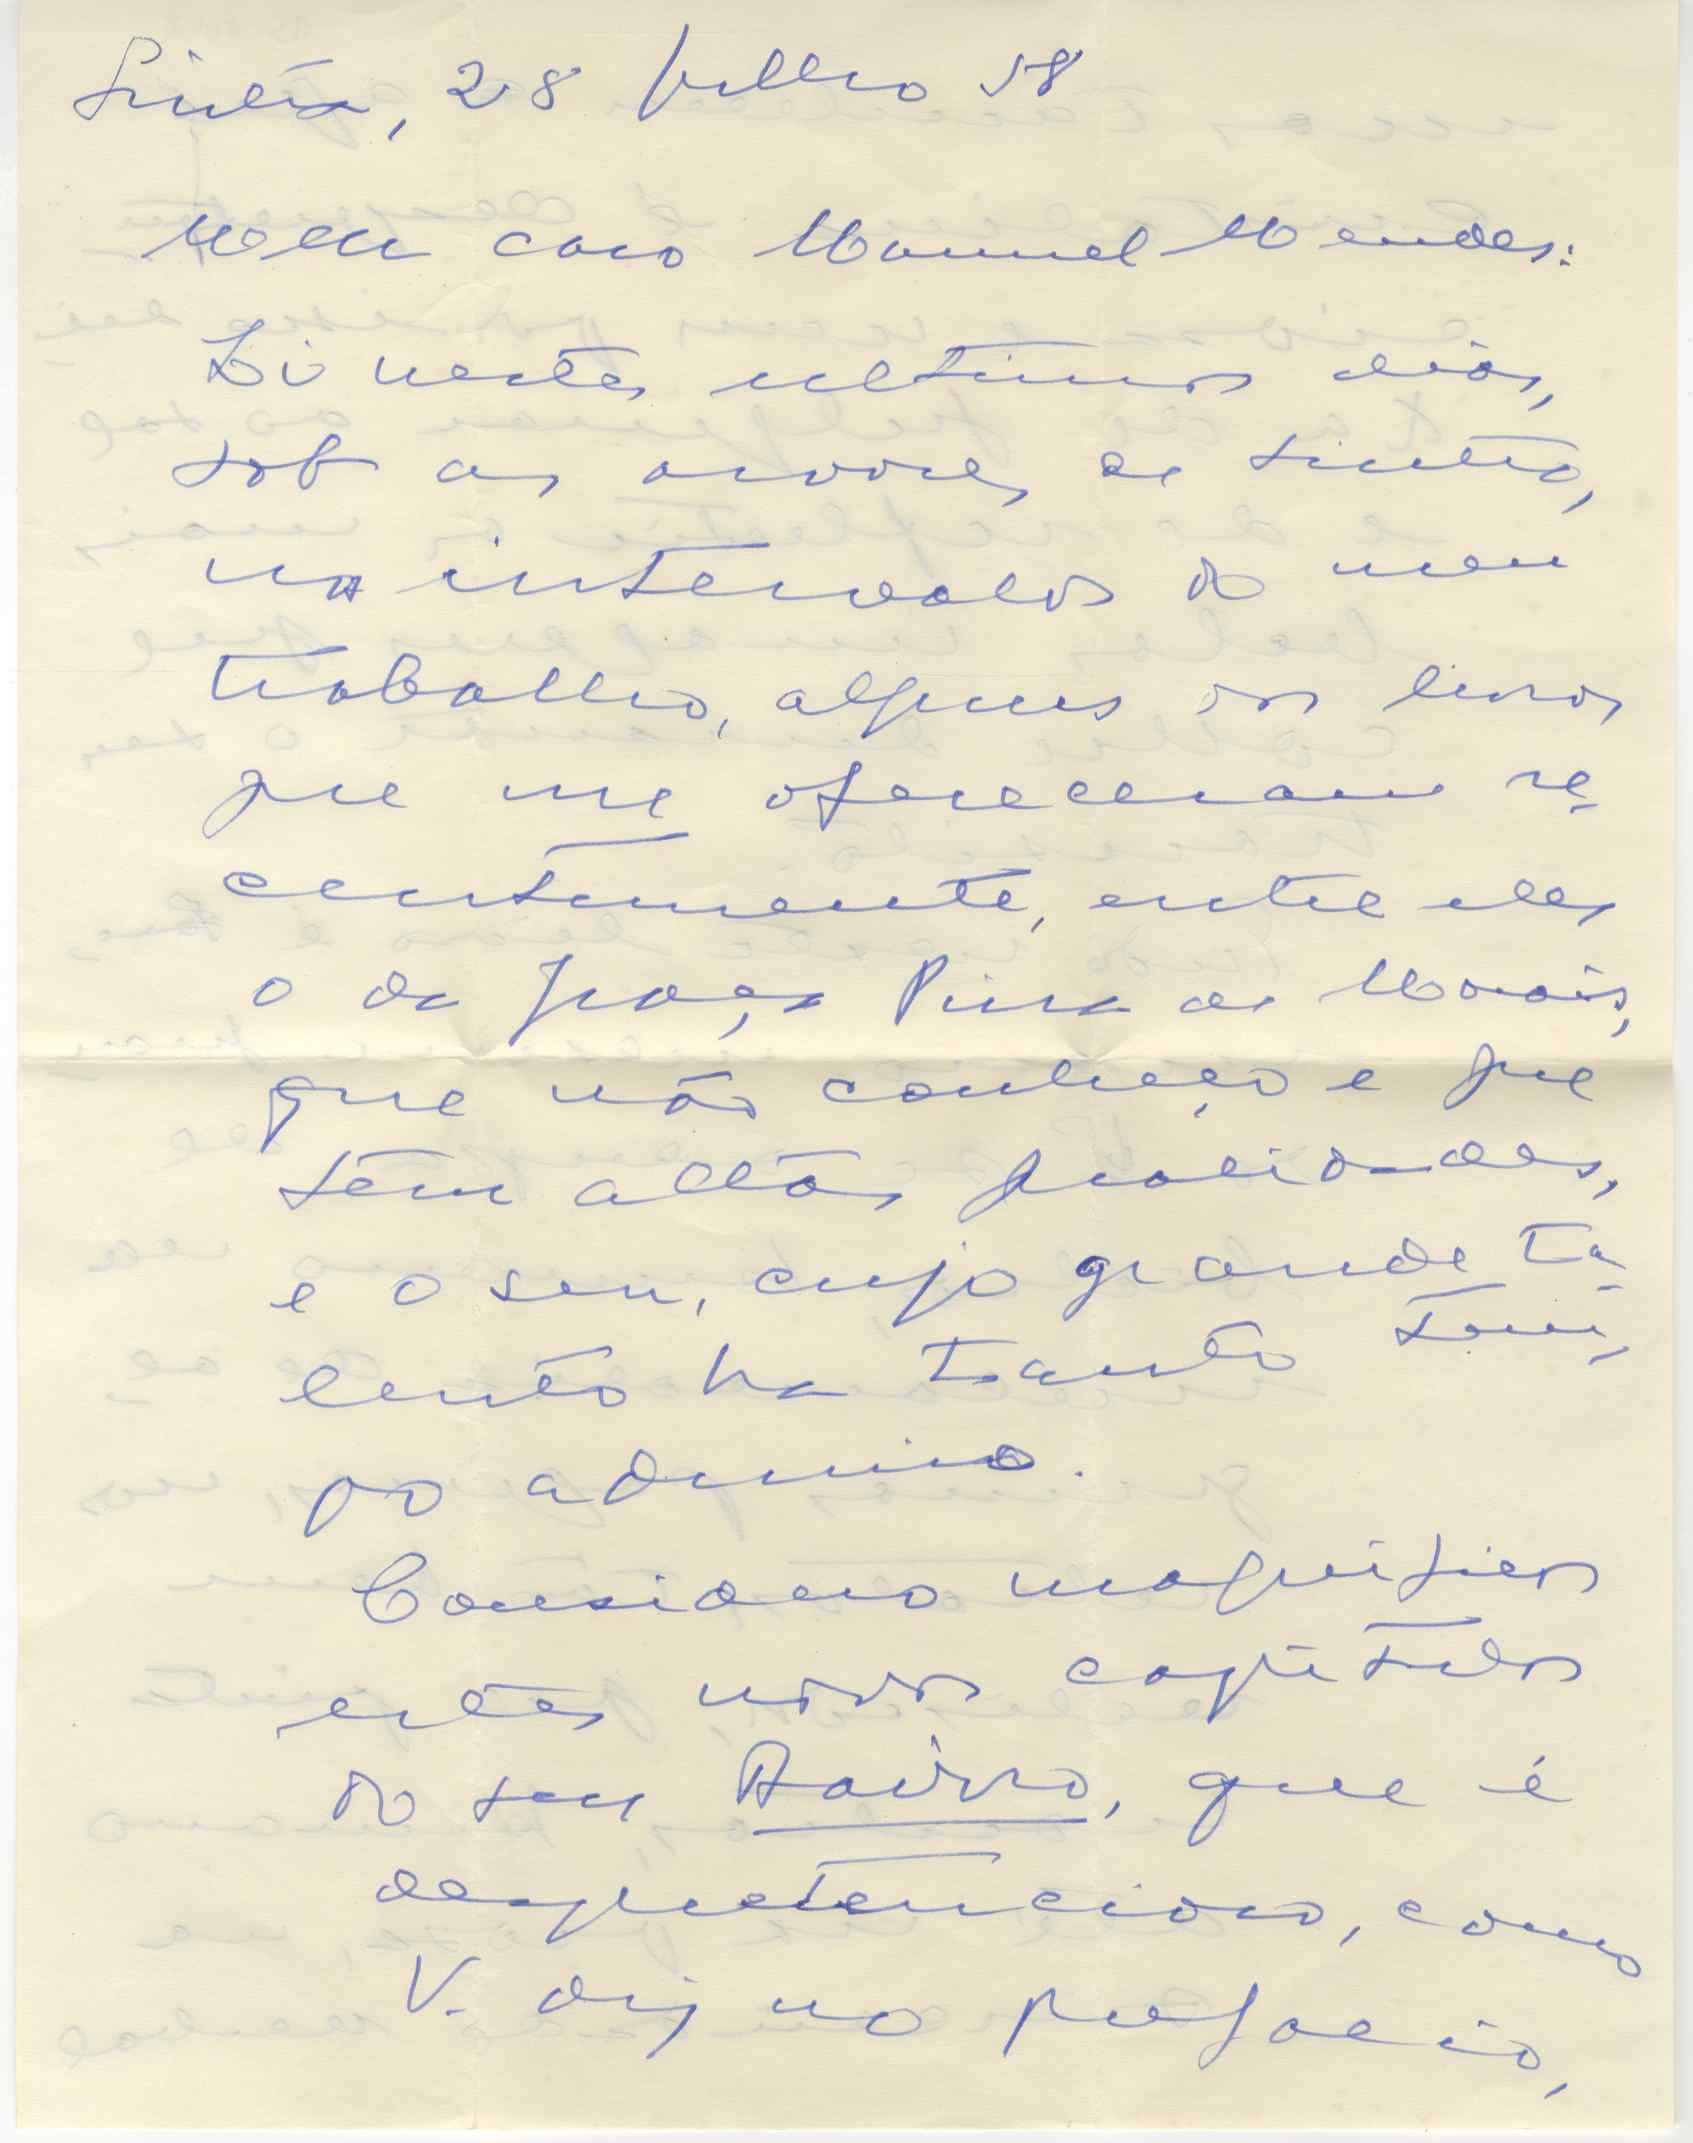 Sintra, 28 Julho 58
Meu caro Manuel Mendes:
Li nestes ultimos dias,
sob as arvores de Sintra,
nos intervalos do meu
trabalho, alguns dos livros
que me ofereceram re-
centemente, entre eles
o de Graça Pina de Morais,
que não conheço e que
tem altas qualidades,
e o seu, cujo grande ta-
lento ha tanto tem-
po admiro.
Considero magnificos
estes novos capitulos
do seu Bairro, que é
despretencioso, como
V. diz no prefacio,